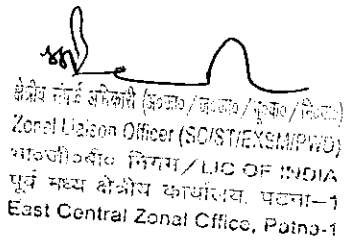 क्षेत्रीय संपर्क अधिकारी (अ०जा०/ज०जा०/भू०का०/नि०ज०)
Zonal Liaison Officer (SC/ST/EXSM/PWD)
भा०जी०बी० निगम/LIC OF INDIA
पूर्व मध्य क्षेत्रीय कार्यालय, पटना-1
East Central Zonal Office, Patna-1